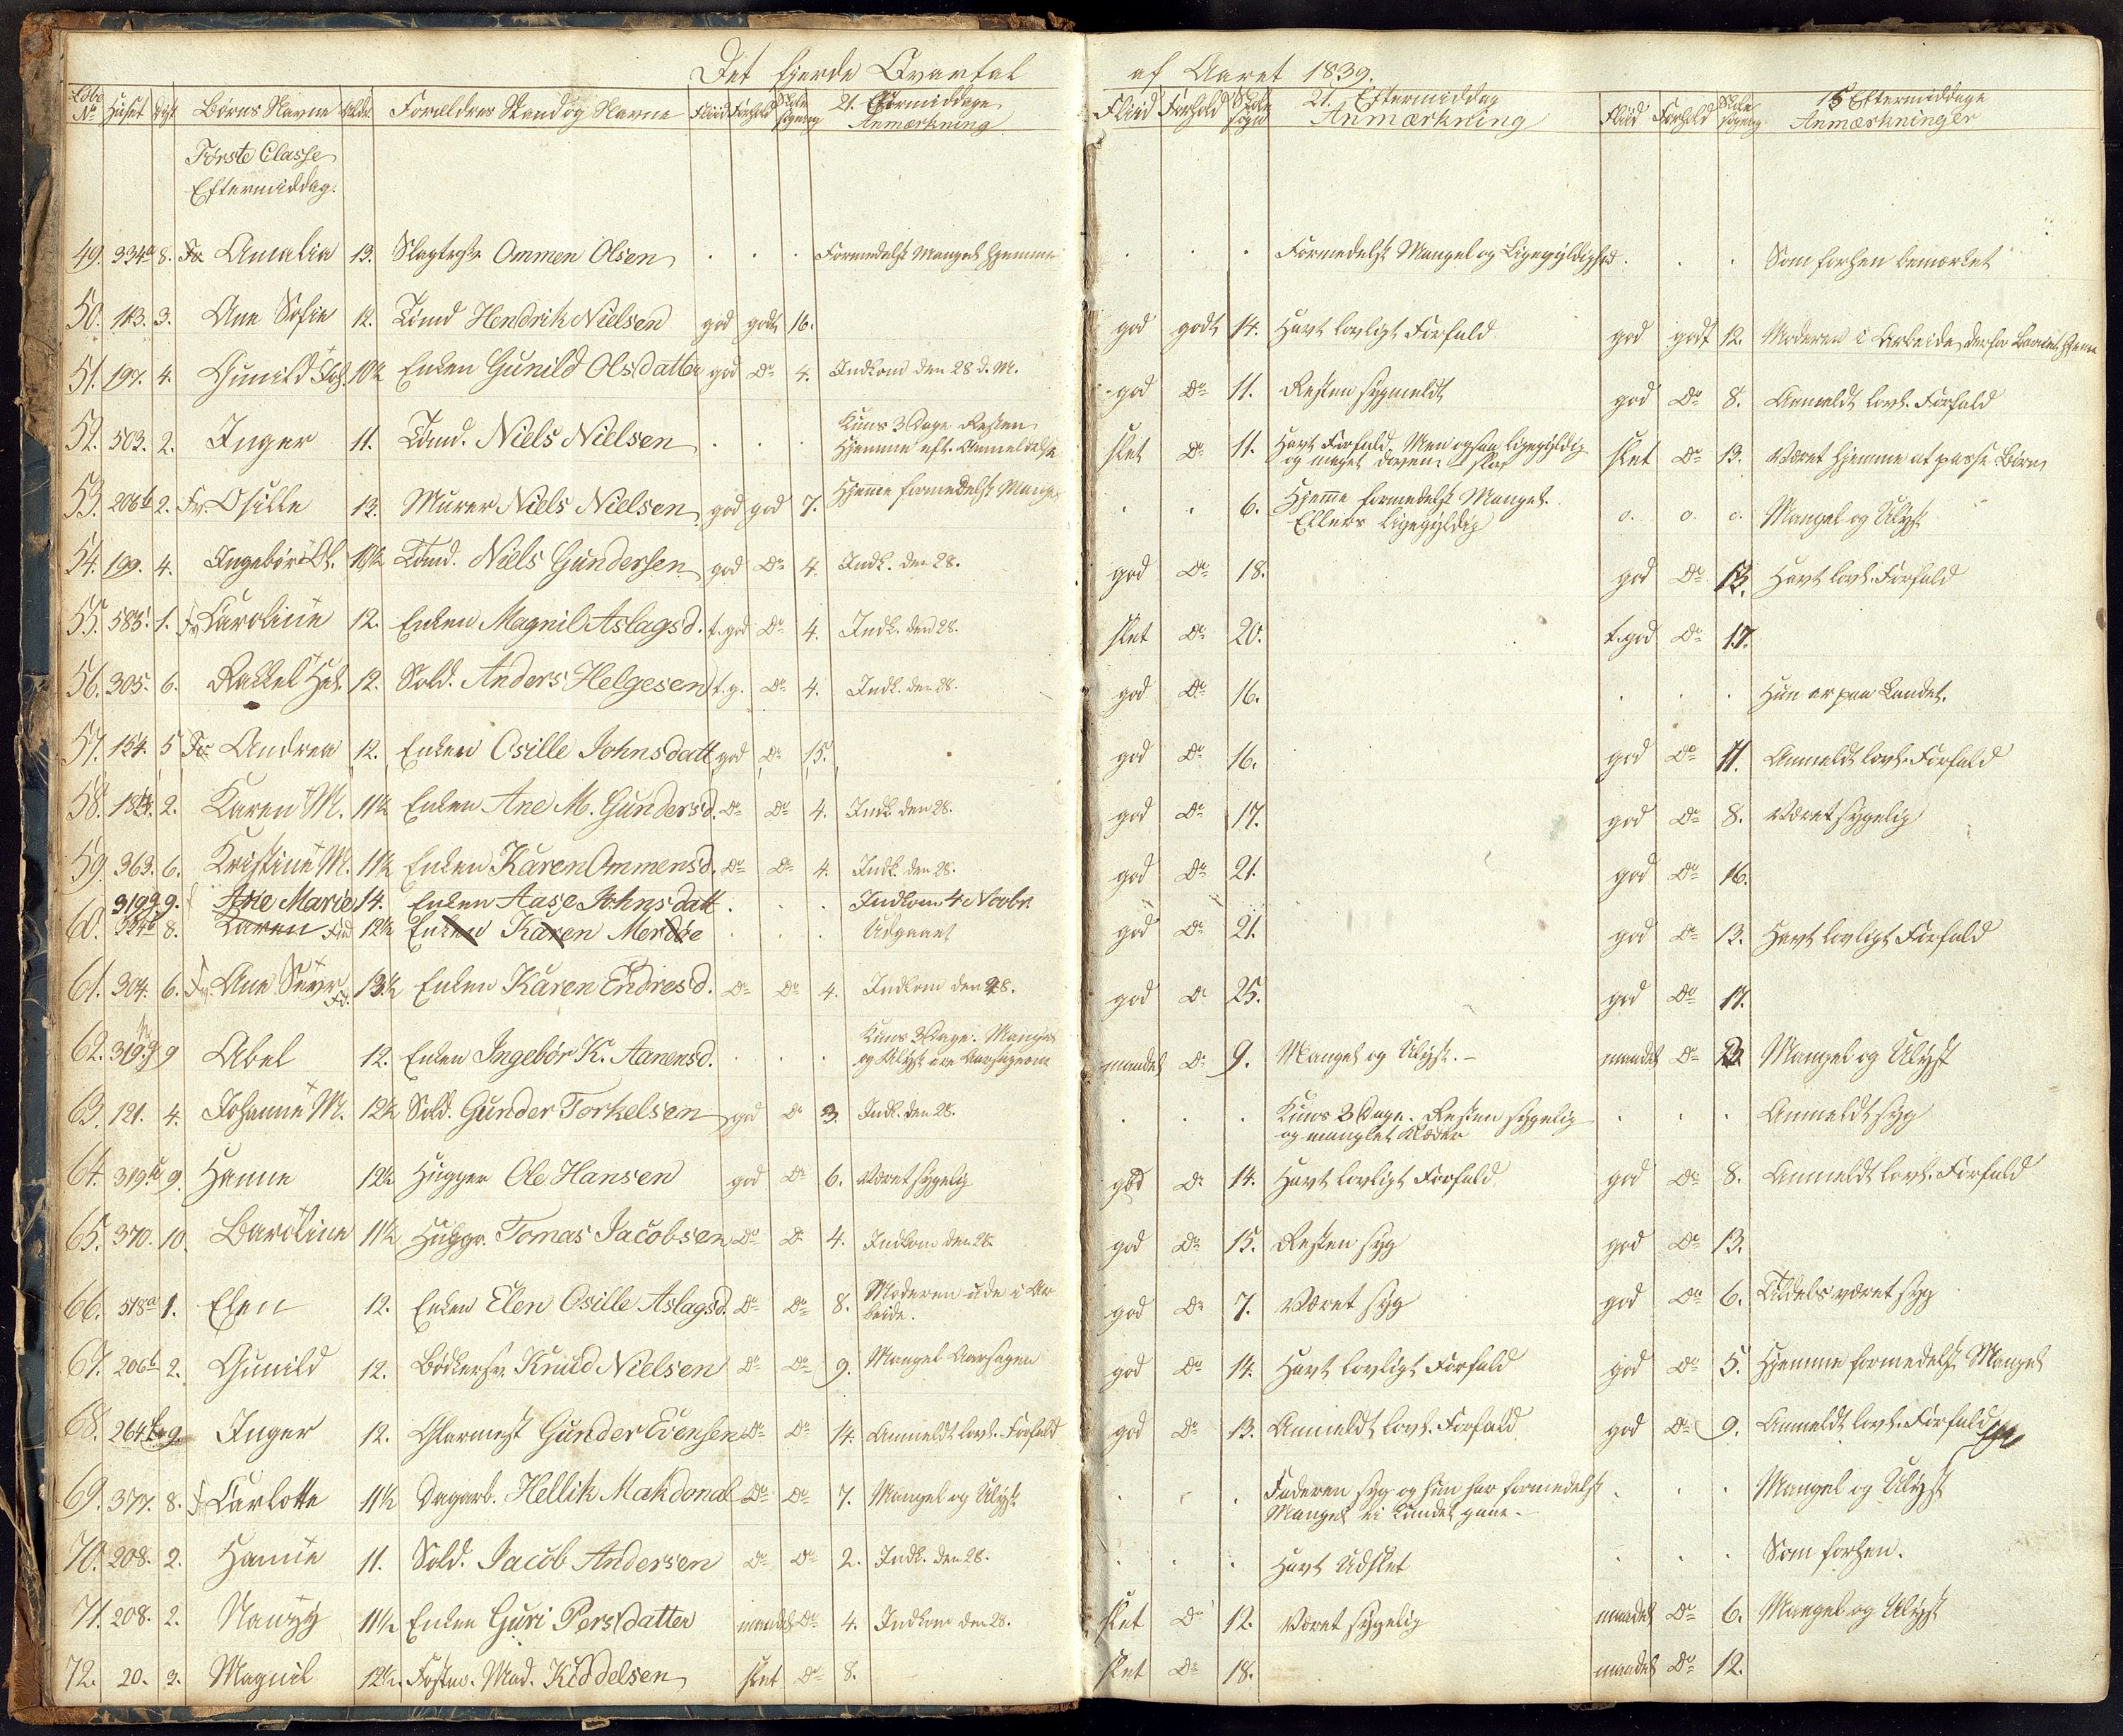 Det fjerde Qvartal af Aaret 1839.
Løbe No Huset Dist Børns Navne Alder Forældres Stand og Navne Fliid Forhold Skolesøgning 21. Formiddage Anmærkning Fliid Forhold Skolesøgn 21. Eftermiddag Anmærkning Fliid Forhold Skolesøgning 15 Eftermiddage Anmærkninger
Første Classe
Eftermiddag.
49. 334a 8. Fr. Amalia 13. Slagtersv. Ommen Olsen . . . Formedelst Mangel hjemme . . . Formedelst Mangel og Ligegyldighed . . . Som forhen bemærket
50. 113. 3. Ane Sofie 12. Tømd Hendrik Nielsen god godt 16. god godt 14. Havt lovligt Forfald god godt 12. Moderen i Arbeide, derfor Barnet hjeme
51. 197. 4. Gunild Joh. 10½ Enken Gunild Olsdatter god Do 4. Indkom den 28 d. M. god Do 11. Resten sygmeldt god Do 8. Anmeldt lovl. Forfald
52. 503. 2. Inger 11. Tømd. Niels Nielsen . . . Kuns 3 Dage Resten
Hjemme eft. Anmeldelse slet Do 11. Havt Forfald. Men ogsaa ligegyldig
og meget doven slet Do 13. Været hjemme at passe Børn
53. 206b 2. Fr. Osille 13. Murer Niels Nielsen god god 7. Hjeme formedelst Mangel . . 6. Hjeme formedelst Mangel.
Ellers ligegyldig o. o. o. Mangel og Ulyst
54. 199. 4. Ingebor Ol. 10½ Tømd. Niels Gundersen god Do 4. Indk. den 28. god Do 18. god Do 13. Havt lovl. Forfald
55. 585. 1. Fr Caroline 12. Enken Magnil Aslagsd. t. god Do 4. Indk. den 28. slet Do 20. t. god Do 17.
56. 305. 6. Rakkel Hel. 12. Sold. Anders Helgesen t. g. Do 4. Indk. den 28. god Do 16. . . . Hun er paa Landet.
57. 154. 5 Fr Andrea 12. Enken Osille Johnsdatt god Do 15. god Do 16. god Do 11. Anmeldt lovl. Forfald
58. 2. Karen M. 11½ Enken Ane M. Gundersd. Do Do 4. Indk. den 28. god Do 17. god Do 8. Været sygelig
59. 363. 6. Kristine M. 11½ Enken Karen Ommensd. Do Do 4. Indk. den 28. god Do 21. god Do 16.
319g 9. Ane Marie 14. Enken Aase Johnsdatt . . . Indkom 4 Novbr.
60. 334b 8. Karen 12½ Enken Karen Merdøe . . . Udgaaet god Do 21. god Do 13. Havt lovligt Forfald
61. 304. 6. Fr. Ane Sevr. 13½ Enken Karen Endresd. Do Do 4. Indkom den 28. god Do 25. god Do 17.
62. 319. 9 Abel 12. Enken Ingebor K. Aanensd. . . . Kuns 3 Dage. Mangel
og Ulyst ere Aarsagerne maadel Do 9. Mangel og Ulyst. – maadel Do Mangel og Ulyst
63. 121. 4. Johanne M. 12½ Sold. Gunder Torkelsen god Do 3. Indk. den 28. . . . Kuns 3 Dage. Resten sygelig
og manglet Klæder . . . Anmeldt syg
64. 319.a 9. Hanne 12½ Hugger Ole Hansen god Do 6. Været sygelig god Do 14. Havt lovligt Forfald god Do 8. Anmeldt lovl. Forfald
65. 370. 10. Baroline 11½ Hugger Tomas Jacobsen Do Do 4. Indkom den 28. god Do 15. Resten syg god Do 13.
66. 518a 1. Elen 12. Enken Elen Osille Aslagsd. Do Do 8. Moderen ude i Ar
beide. god Do 7. Været syg god Do 6. Tildels været syg
67. 206b 2. Gunild 12. Bødkersv. Knud Nielsen Do Do 9. Mangel Aarsagen god Do 14. Havt lovligt Forfald god Do 5. Hjemme formedelst Mangel
68. 264 9 Inger 12. Glarmest Gunder Evensen Do Do 14. Anmeldt lovl. Forfald god Do 13. Anmeldt lovl. Forfald god Do 9. Anmeldt lovl. Forfald
69. 377. 8. Fr Carlotte 11½ Dagarb. Hellik Makdonal Do Do 7. Mangel og Ulyst . . . Faderen syg og hun har formedelst
Mangel ei kundet gaae. . . . Mangel og Ulyst
70. 208. 2. Hanne 11. Sold. Jacob Andersen Do Do 2. Indk. den 28. . . . Havt Udslet . . . Som forhen.
71. 208. 2. Nanzy 11½ Enken Guri Persdatter maadel Do 4. Indkom den 28. slet Do 12. Været sygelig maadel Do 6. Mangel og Ulyst
72. 20. 3. Magnil 12½. Fostm. Mad. Kiddelsen slet Do 8. slet Do 18. maadel Do 12.